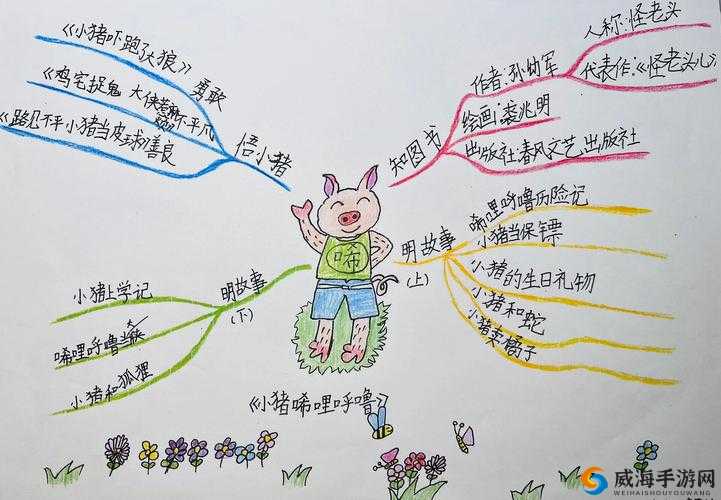 《小猪吓跑了大狼》 勇敢
《鸡宅捉鬼 大侠
《路见不平小猪当皮球》善良
悟小猪
知图书
作者:孙幼军
人称:怪老头
代表作:《怪老头儿》
绘画:裘兆明
出版社:春风文艺出版社
明故事
(上)
唏哩呼噜历险记
小猪当保镖
小猪的生日礼物
小猪和蛇
小猪卖橘子
明故事
(下)
小猪上学记
唏哩呼噜当
小猪和狐狸
唏
《小猪唏哩呼噜》
威海手游网
WEIHAISHOUYOUWANG